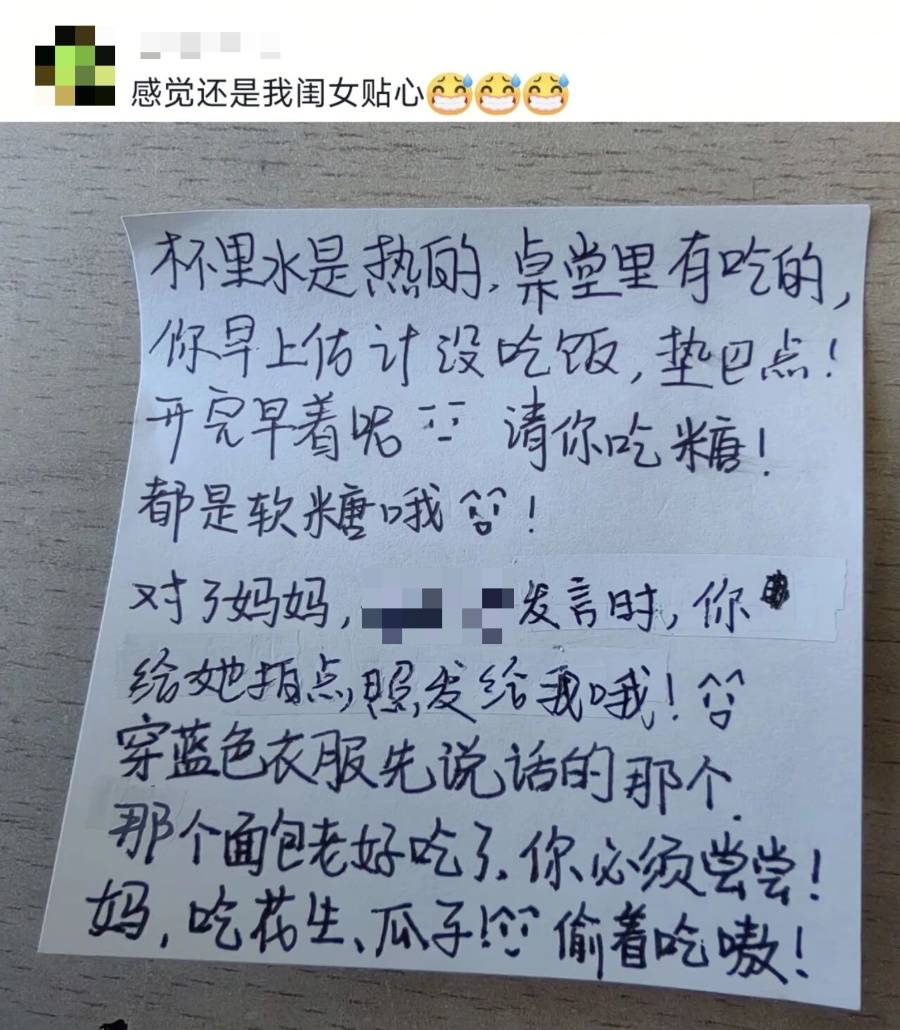 感觉还是我闺女贴心😅😅😅
杯里水是热的,桌堂里有吃的,
你早上估计没吃饭,垫巴点!
开完早着呢 请你吃糖!
都是软糖哦!
对了妈妈, 发言时,你
给她拍点照,发给我哦!
穿蓝色衣服先说话的那个.
那个面包老好吃了,你必须尝尝!
妈,吃花生、瓜子! 偷着吃嗷!